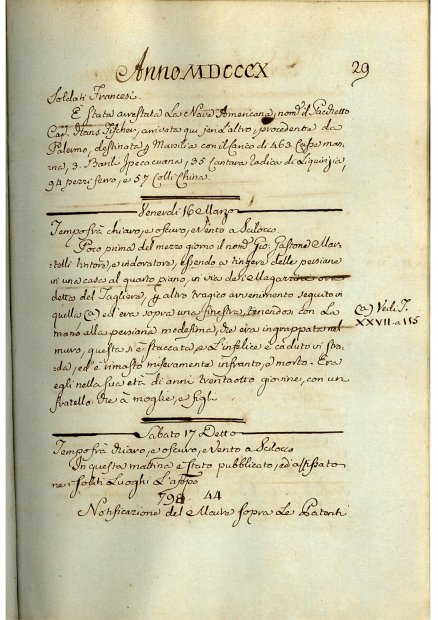 Anno MDCCCX
29
Soldati Francesi.
E stata arrestata La Nave Americana, nom.ª il Pacchetto
Cap. Hans Fischer, arrivata qui jeri l'altro, procedente da
Palermo, destinata p Marsilia con il carico di 463 Casse man-
na, 3. Barili Ipecacuana, 35 Cantara radica di Liquirizia,
94 pezzi ferro, e 57 Colli China.
Venerdi 16 Marzo
Tempo frà chiaro, e oscuro, e Vento a Scilocco.
Poco prima del mezzo giorno il nom.º Gio. Gastone Mar-
telli tintore, e indoratore, essendo a tingere delle persiane
in una casa al quarto piano, in via dei Magazzini
detta del Tagliere, p altro tragico avvenimento seguito in
quella (a) ed era sopra una finestra, tenendosi con La
mano alla persiana medesima, che era ingrappata nel
muro, questa si è staccata, e L'infelice è caduto in stra-
da, ed' è rimasto miseramente infranto, e morto. Era
egli nella sua età di anni trentaotto giovine, con un
fratello che à moglie, e figli
(a) Vedi T.
XXVII. a 115
Sabato 17 Detto
Tempo frà chiaro, e oscuro, e Vento a Scilocco
In questa mattina è stato pubblicato, ed affissato
ne i soliti Luoghi L'appo
798 44
Notificazione del Maire sopra Le Patenti